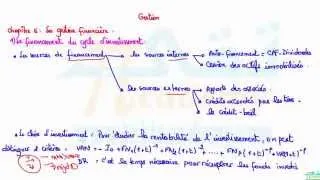 Gestion
chapitre 6: La gestion financière
1) Le financement du cycle d'investissement.
• Les sources de financement → les sources internes → Auto-financement = CAF - Dividendes
→ Cession des actifs immobilisés
→ les sources externes → Apports des associés
→ crédits accordés par les tiers
→ le crédit-bail
• Le choix d'investissement = Pour étudier la rentabilité de l'investissement, on peut
distinguer 2 critères = VAN = - I0 + FN1 (1+t)^-1 + FN2 (1+t)^-2 + ... + FNn (1+t)^-n + VR(1+t)^-n
DR = c'est le temps nécessaire pour récupérer les fonds investis